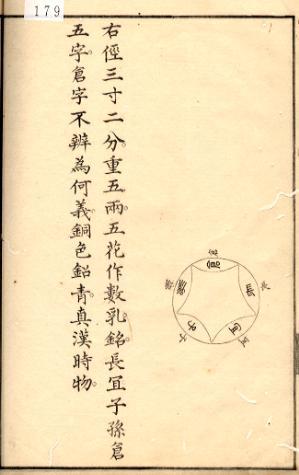 179
長
冝
子
右徑三寸二分。重五兩。五花作數乳。銘長冝子孫倉
五字。倉字不辨為何義。銅色鉛青。真漢時物。